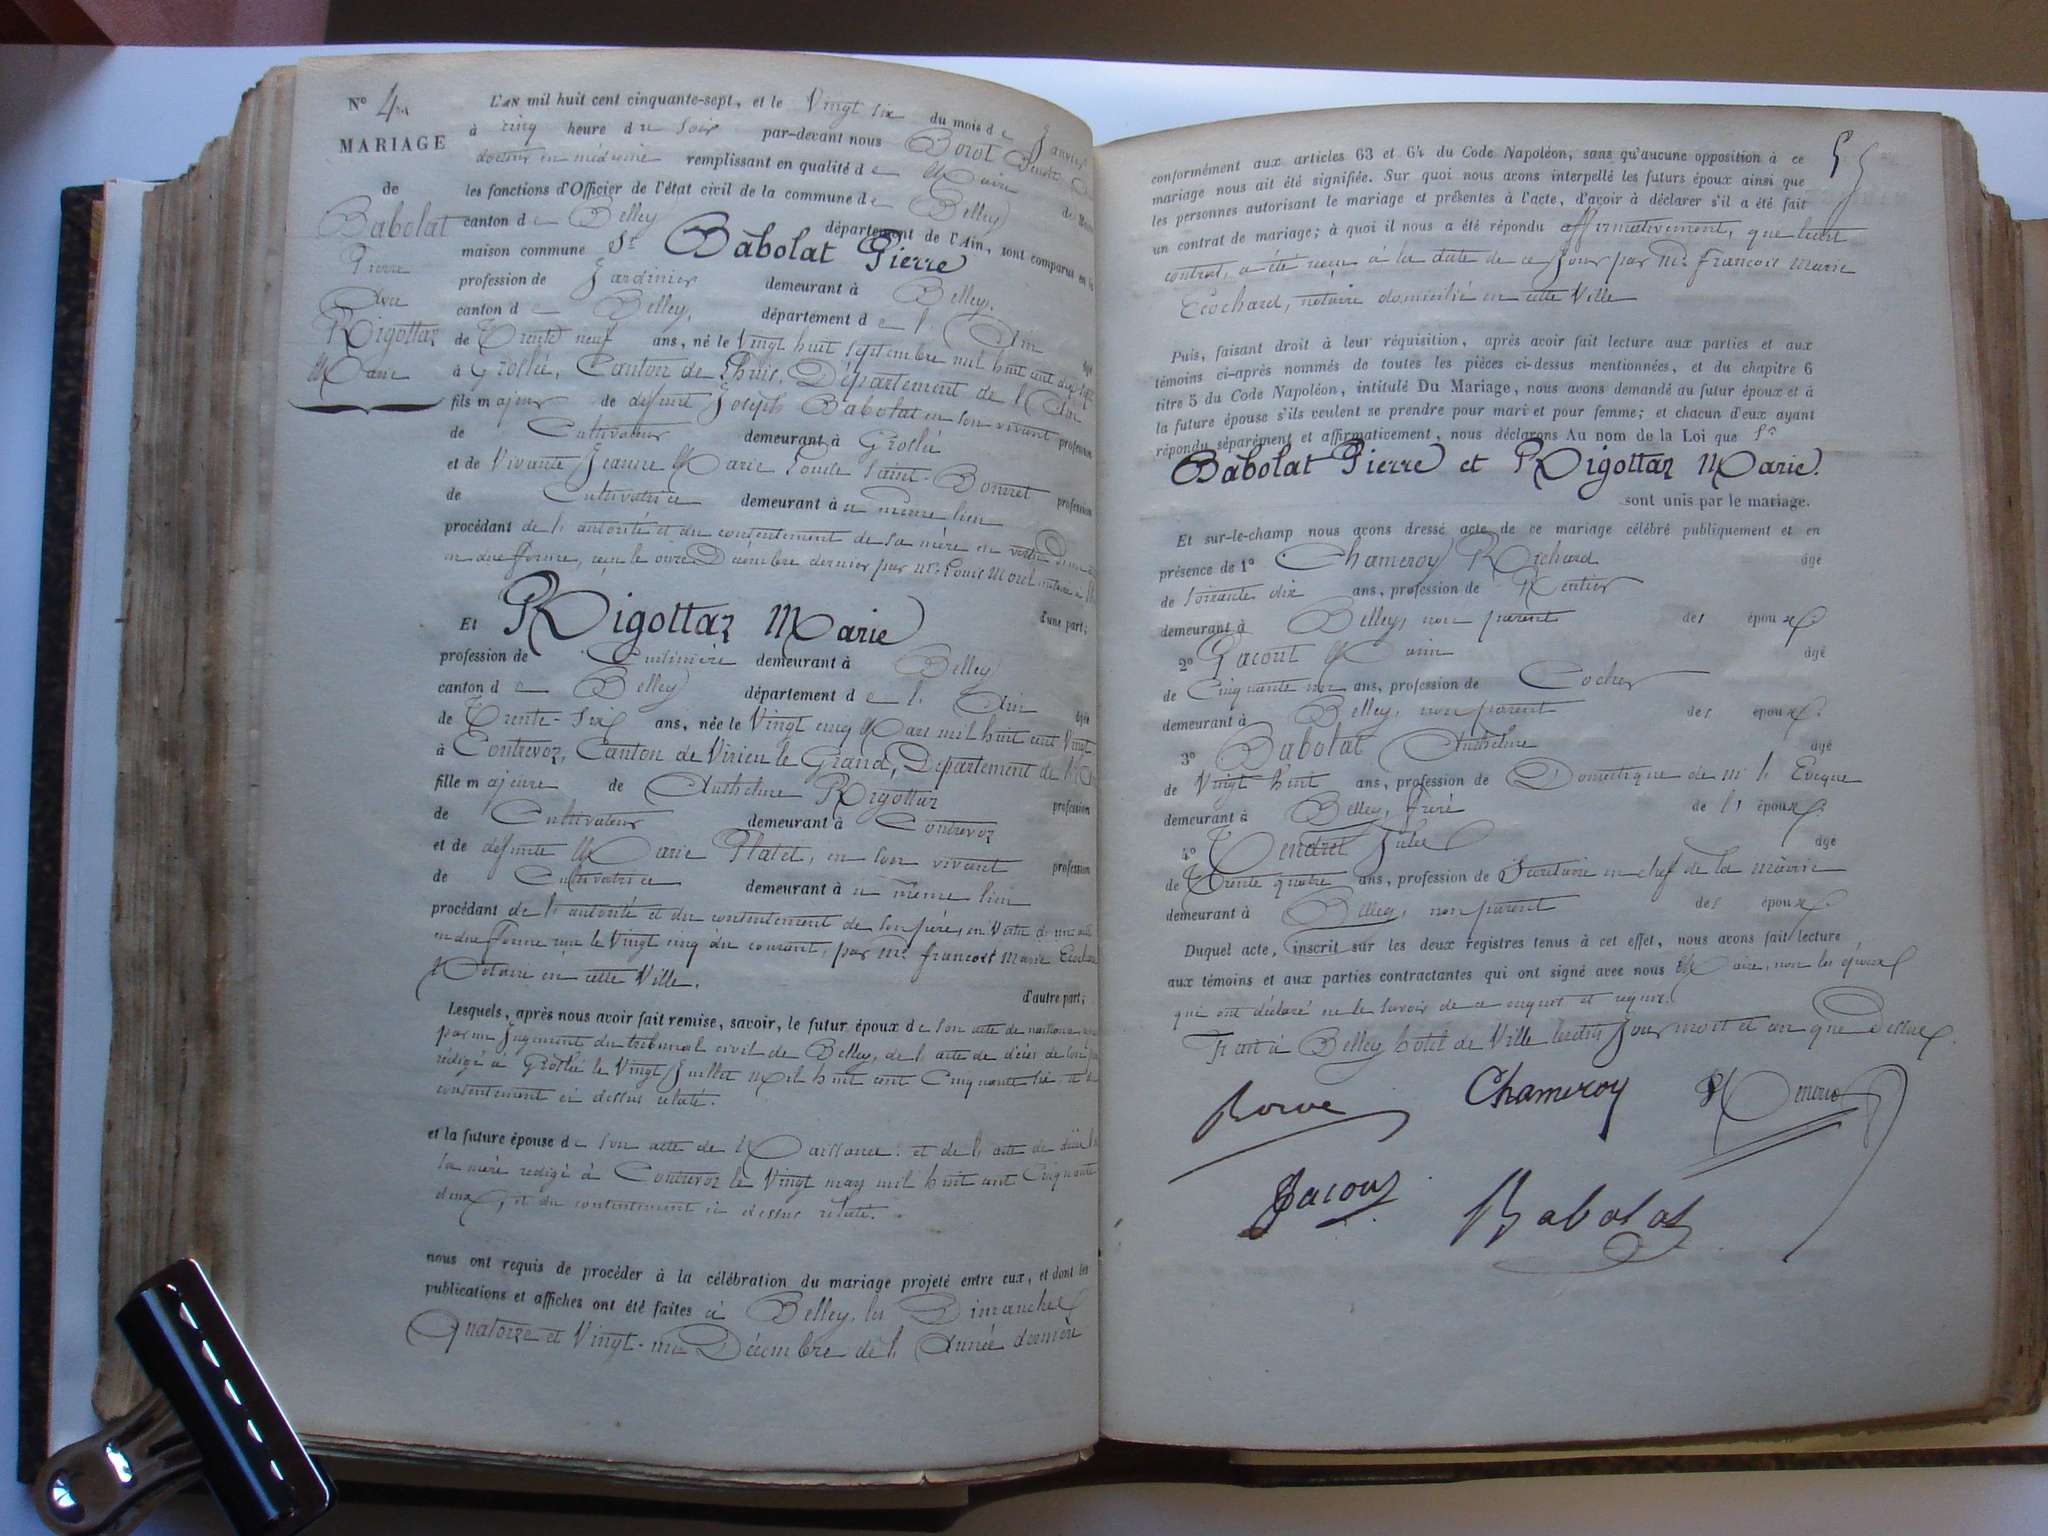 N° 4
MARIAGE
de
Babolat
Pierre
Avec
Rigottaz
Marie
L'AN mil huit cent cinquante-sept, et le Vingt six du mois de Janvier
à cinq heure du Soir par-devant nous Borot Benoit
docteur en médecine remplissant en qualité de Maire
les fonctions d'Officier de l'état civil de la commune de Belley
canton de Belley département de l'Ain, sont comparus en la
maison commune Sr Babolat Pierre
profession de Jardinier demeurant à Belley,
canton de Belley, département de l'Ain
de Trente neuf ans, né le Vingt huit septembre mil huit cent dix sept
à Groslée, Canton de Lhuis, Département de l'Ain
fils majeur de défunt Joseph Babolat en son vivant profession
de Cultivateur demeurant à Groslée
et de Vivante Jeanne Marie Saint-Bonnet profession
de Cultivatrice demeurant à ce même lieu
procédant de l'autorité et du consentement de sa mère en vertu d'un
en due forme, reçu le onze Décembre dernier par Me Louis Morel notaire à
Et Rigottaz Marie d'une part;
profession de Cuisinière demeurant à Belley
canton de Belley département de l'Ain âgée
de Trente-Six ans, née le Vingt cinq Mars mil huit cent Vingt
à Contrevoz, Canton de Virieu le Grand, Département de l'Ain
fille majeure de Anthelme Rigottaz profession
de Cultivateur demeurant à Contrevoz
et de défunte Marie Platet, en son vivant profession
de Cultivatrice demeurant à ce même lieu
procédant de l'autorité et du consentement de son père, en Vertu d'un acte
en due forme reçu le Vingt cinq du courant, par Me francois Marie Ecochard
Notaire en cette Ville.
d'autre part;
Lesquels, après nous avoir fait remise, savoir, le futur époux de son acte de naissance
par un Jugement du tribunal civil de Belley, de l'acte de décès de son père
rédigé à Groslée le Vingt Juillet Mil huit cent Cinquante six et du
consentement ci dessus relaté.
et la future épouse de son acte de Naissance: et de l'acte de décès de
sa mère redigé à Contrevoz le Vingt may mil huit cent Cinquante
deux, et du consentement ci dessus relaté.
nous ont requis de procéder à la célébration du mariage projeté entre eux, et dont les
publications et affiches ont été faites à Belley, les Dimanches
Quatorze et Vingt-un Décembre de l'Année dernière
55
conformément aux articles 63 et 64 du Code Napoléon, sans qu'aucune opposition à ce
mariage nous ait été signifiée. Sur quoi nous avons interpellé les futurs époux ainsi que
les personnes autorisant le mariage et présentes à l'acte, d'avoir à déclarer s'il a été fait
un contrat de mariage; à quoi il nous a été répondu affirmativement, que leur
contrat, a été reçu à la date de ce Jour par Me francois Marie
Ecochard, notaire domicilié en cette Ville
Puis, faisant droit à leur réquisition, après avoir fait lecture aux parties et aux
témoins ci-après nommés de toutes les pièces ci-dessus mentionnées, et du chapitre 6
titre 5 du Code Napoléon, intitulé Du Mariage, nous avons demandé au futur époux et à
la future épouse s'ils veulent se prendre pour mari et pour femme; et chacun d'eux ayant
répondu séparément et affirmativement, nous déclarons Au nom de la Loi que Sr
Babolat Pierre et Rigottaz Marie.
sont unis par le mariage.
Et sur-le-champ nous avons dressé acte de ce mariage célébré publiquement et en
présence de 1° Chameroy Richard âgé
de Soixante dix ans, profession de Rentier
demeurant à Belley, non parent des époux
2° Pacout âgé
de Cinquante ans, profession de Cocher
demeurant à Belley, non parent des époux.
3° Babolat Anthelme âgé
de Vingt huit ans, profession de Domestique de Mr l'Evêque
demeurant à Belley, frere de l'époux.
4° Tendret Jules âgé
de Trente quatre ans, profession de Secrétaire en chef de la mairie
demeurant à Belley, non parent des époux
Duquel acte, inscrit sur les deux registres tenus à cet effet, nous avons fait lecture
aux témoins et aux parties contractantes qui ont signé avec nous Maire, non les époux
qui ont déclaré ne le savoir de ce enquis et requis.
Fait à Belley hotel de Ville lesdits Jour mois et an que Dessus.
Chameroy
Babolat